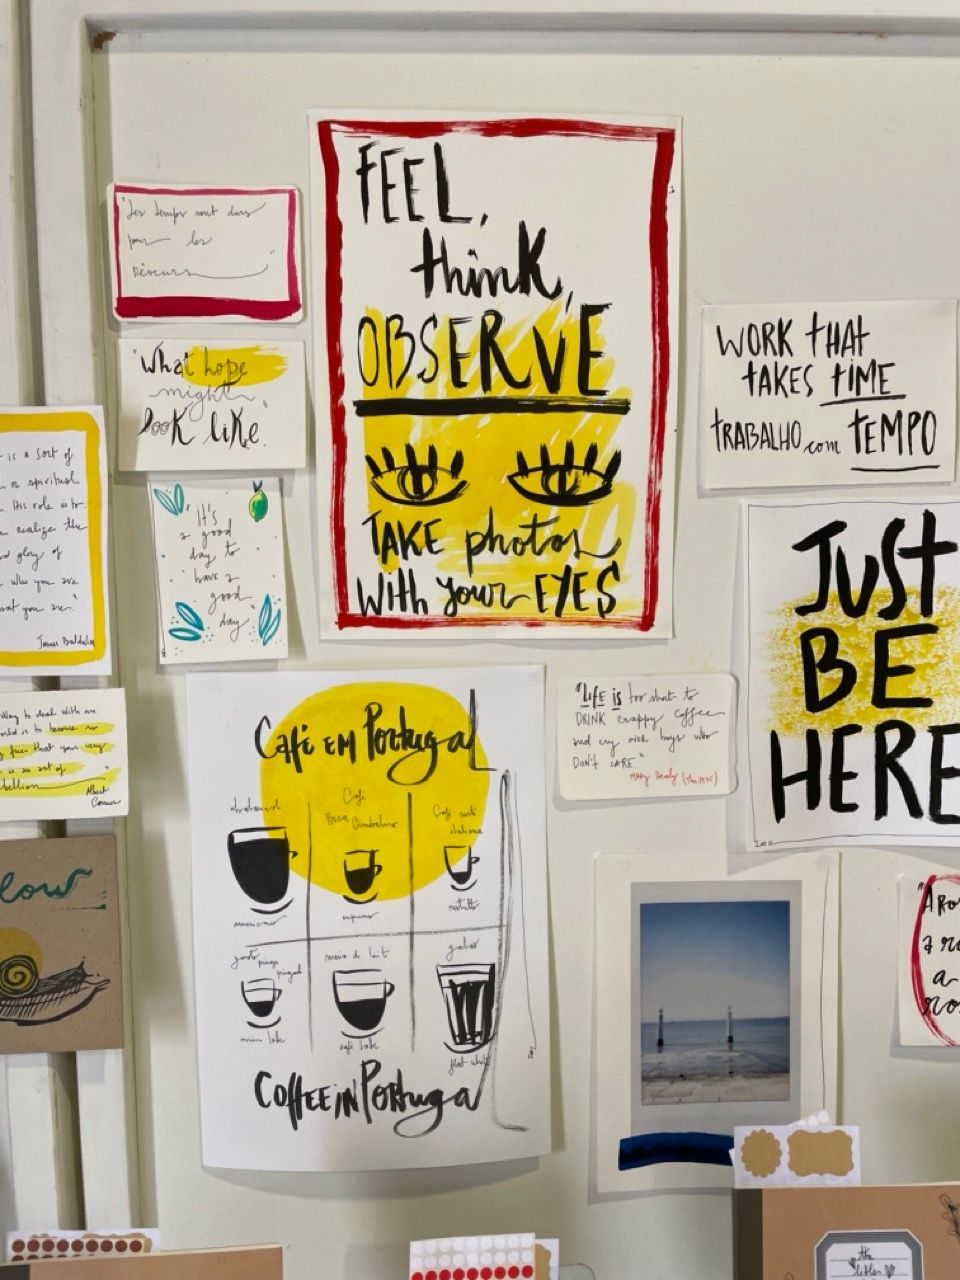 "Les temps sont durs
pour les
rêveurs"
"What hope
might
look like."
is a sort of
spiritual
His role is to
realize the
glory of
who you are
what you are."
James Baldwin
"It's
a good
day to
have a
good
day"
FEEL,
think,
OBSERVE
TAKE photos
with your EYES
WORK THAT
TAKES TIME
TRABALHO com TEMPO
JUST
BE
HERE
"Life is too short to
DRINK crappy coffee
and cry over boys who
DON'T CARE."
Matty Healy (The 1975)
way to deal with an
world is to become so
free that your very
is an act of
rebellion"
Albert
Camus
Café EM Portugal
abatanado
americano
Café
BICA Cimbalino
expresso
Café curto
italiana
ristretto
garoto pingo
pingado
mini latte
meia de leite
café latte
galão
flat white
COFFEE IN Portugal
low
"A ro
a ro
a
ro
the